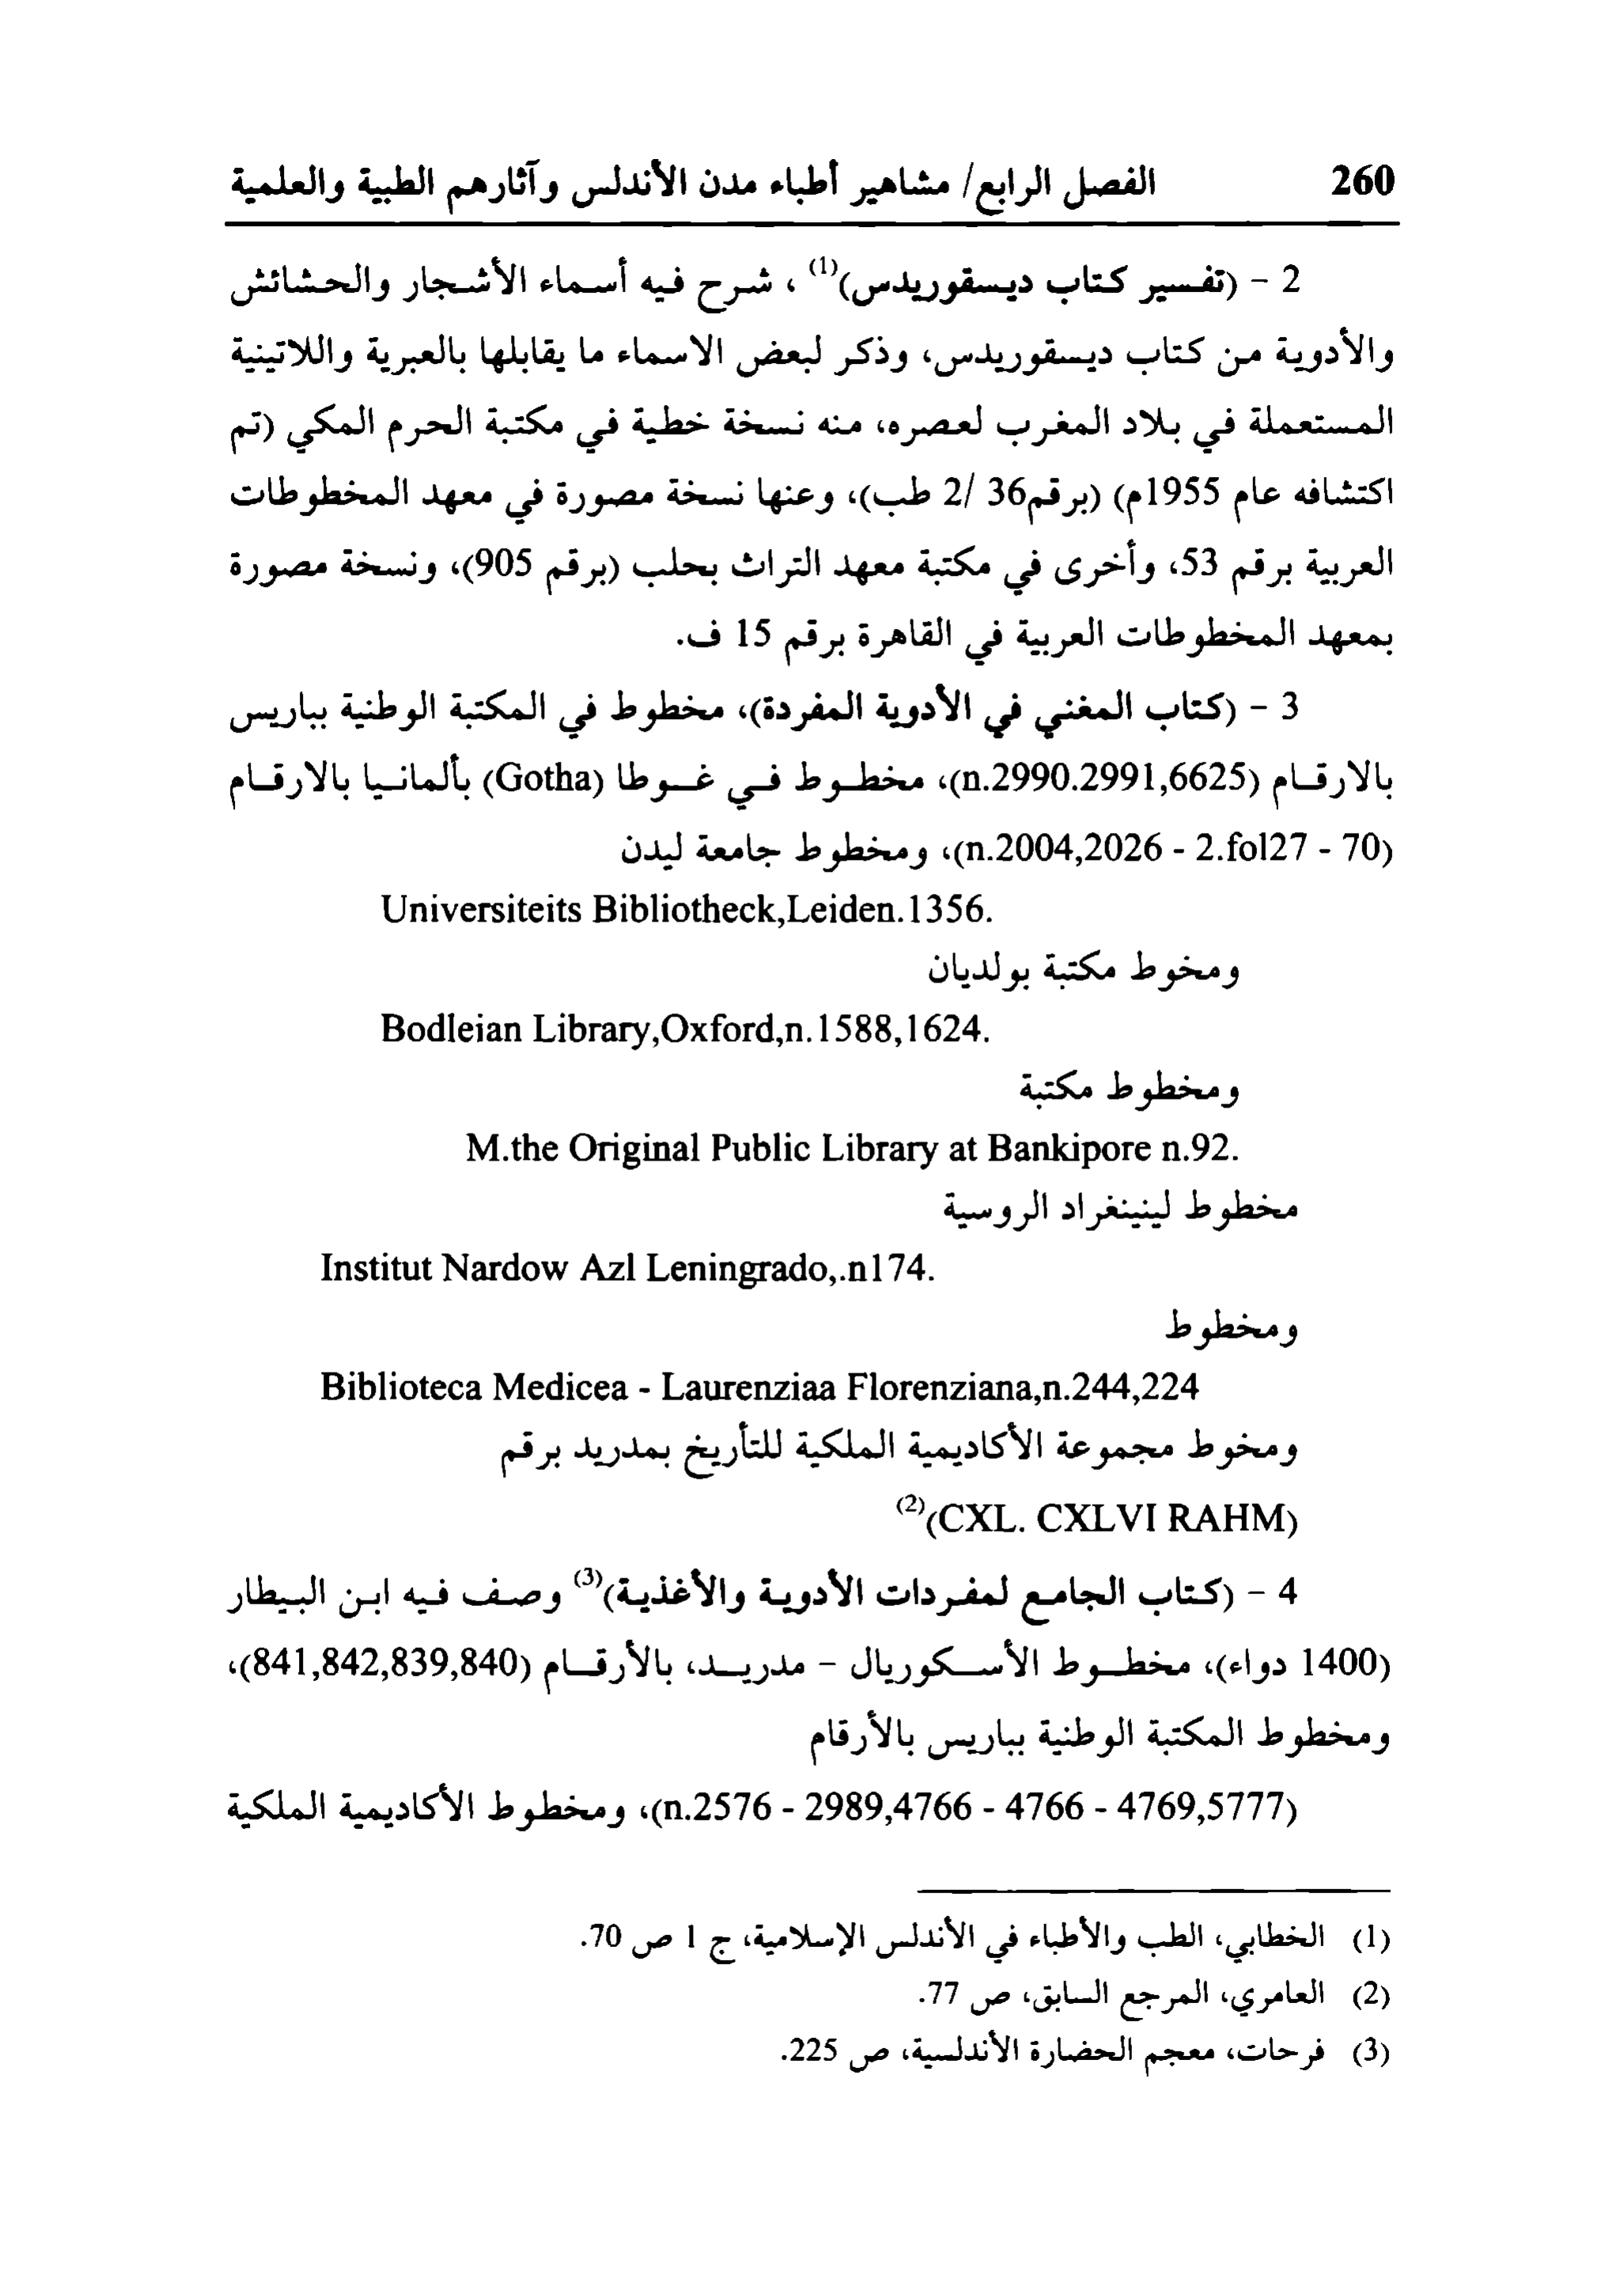 260 الفصل الرابع/ مشاهير أطباء مدن الأندلس وآثارهم الطبية والعلمية
2 - (تفسير كتاب ديسقوريدس)(1) ، شرح فيه أسماء الأشجار والحشائش
والأدوية من كتاب ديسقوريدس، وذكر لبعض الاسماء ما يقابلها بالعبرية واللاتينية
المستعملة في بلاد المغرب لعصره، منه نسخة خطية في مكتبة الحرم المكي (تم
اكتشافه عام 1955م) (برقم36 /2 طب)، وعنها نسخة مصورة في معهد المخطوطات
العربية برقم 53، وأخرى في مكتبة معهد التراث بحلب (برقم 905)، ونسخة مصورة
بمعهد المخطوطات العربية في القاهرة برقم 15 ف.
3 - (كتاب المغني في الأدوية المفردة)، مخطوط في المكتبة الوطنية بباريس
بالارقام (n.2990.2991,6625)، مخطوط في غوطا (Gotha) بألمانيا بالارقام
(n.2004,2026 - 2.fol27 - 70)، ومخطوط جامعة ليدن
Universiteits Bibliotheck,Leiden.1356.
ومخوط مكتبة بولديان
Bodleian Library,Oxford,n.1588,1624.
ومخطوط مكتبة
M.the Original Public Library at Bankipore n.92.
مخطوط لينينغراد الروسية
Institut Nardow Azl Leningrado,.n174.
ومخطوط
Biblioteca Medicea - Laurenziaa Florenziana,n.244,224
ومخوط مجموعة الأكاديمية الملكية للتأريخ بمدريد برقم
(CXL. CXLVI RAHM)(2)
4 - (كتاب الجامع لمفردات الأدوية والأغذية)(3) وصف فيه ابن البيطار
(1400 دواء)، مخطوط الأسكوريال - مدريد، بالأرقام (841,842,839,840)،
ومخطوط المكتبة الوطنية بباريس بالأرقام
(n.2576 - 2989,4766 - 4766 - 4769,5777)، ومخطوط الأكاديمية الملكية
(1) الخطابي، الطب والأطباء في الأندلس الإسلامية، ج 1 ص 70.
(2) العامري، المرجع السابق، ص 77.
(3) فرحات، معجم الحضارة الأندلسية، ص 225.